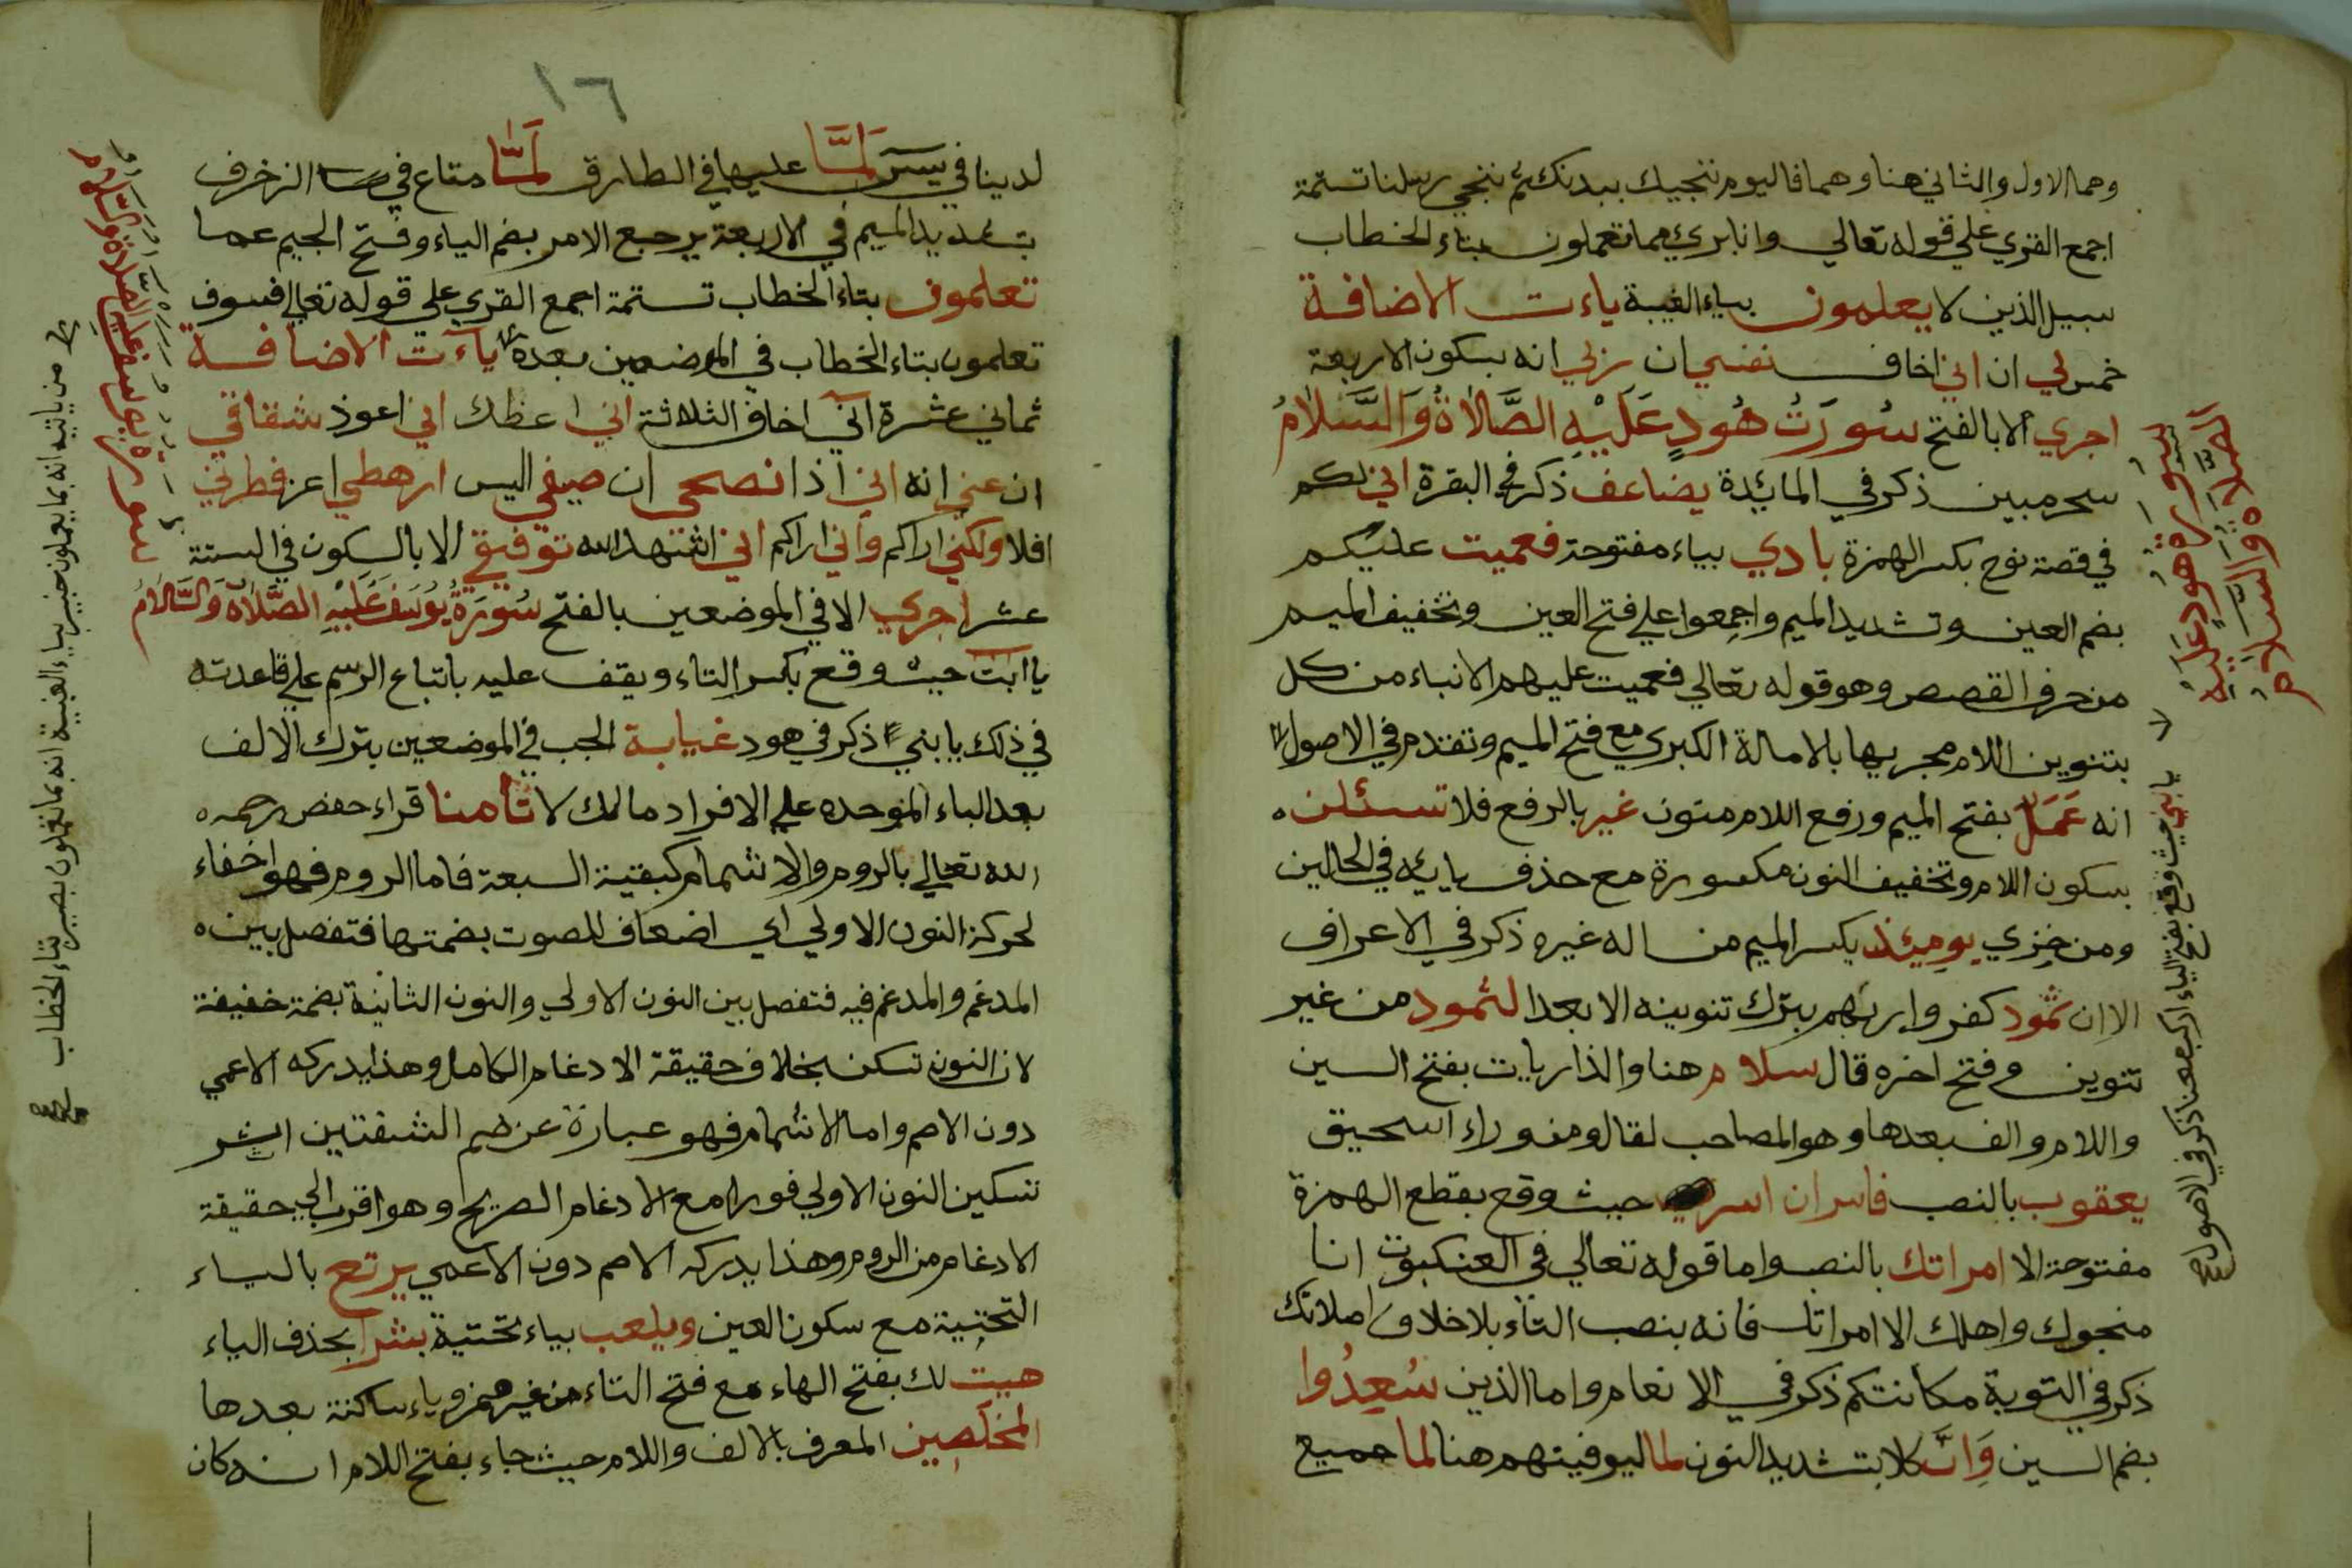 وهما الاول والثاني هنا وهما فاليوم ننجيك ببدنك ثم ننجي رسلنا تستمة
اجمع القري علي قوله تعالي وانا بريء مما تعملون بتاء الخطاب
سبيل الذين لا يعلمون بياء الغيبة ياءت الاضافة
خمس لي ان اني اخاف نفسي ان ربي انه بسكون الاربعة
اجري الا بالفتح سُورَتُ هُودٍ عَلَيْهِ الصَّلَاةُ وَالسَّلَامُ
سحر مبين ذكر في المائدة يضاعف ذكر في البقرة اني لكم
في قصة نوح بكسر الهمزة بادي بياء مفتوحة فعميت عليكم
بضم العين وتشديد الميم واجمعوا علي فتح العين وتخفيف الميم
من حرف القصص وهو قوله تعالي فعميت عليهم الانباء من كل
بتنوين اللام مجريها بالامالة الكبري مع فتح الميم وتقدم في الاصول
انه عَمَلٌ بفتح الميم ورفع اللام منون غير بالرفع فلا تسئلن
بسكون اللام وتخفيف النون مكسورة مع حذف يائه في الحالين
ومن خزي يومِئذ بكسر الميم من اله غيره ذكر في الاعراف
الا ان ثمود كفروا ربهم بترك تنوينه الا بعدا لثمود من غير
تنوين مع فتح اخره قال سلام هنا والذاريات بفتح السين
واللام والف بعدها وهو المصاحب لقالو من وراء اسحيق
يعقوب بالنصب فاسر ان اسر حيث وقع بقطع الهمزة
مفتوحة الا امراتك بالنصب واما قوله تعالي في العنكبوت انا
منجوك واهلك الا امراتك فانه بنصب التاء بلا خلاف اصلاتك
ذكر في التوبة مكانتكم ذكر في الانعام واما الذين سُعِدُوا
بضم السين وَانَّ كلا بتشديد النون لما ليوفينهم هنا لما جميع
سورة هود عليه
الصلاة والسلام
يا بني حيث وقع بفتح الياء اركب معنا ذكر في الاصول
١٦
لدينا في يسٓ لَمَّا عليها في الطارق لَمَّا متاع في الزخرف
بتشديد الميم في الاربعة يرجع الامر بضم الياء وفتح الجيم عما
تعلمون بتاء الخطاب تستمة اجمع القري علي قوله تعالي فسوف
تعلمون بتاء الخطاب في الموضعين بعده ياءت الاضافة
ثماني عشرة اني اخاف الثلاثة اني اعظك اني اعوذ شقاقي
ان عني انه اني اذا نصحي ان ضيفي اليس ارهطي اعز فطرني
افلا ولكني اراكم واني اراكم اني اشهد الله توفيقي الا بالسكون في الستة
عشر اجري الا في الموضعين بالفتح سُورَةُ يُوسُفَ عَلَيْهِ الصَّلَاة وَالسَّلَامُ
يا ابت حيث وقع بكسر التاء ويقف عليه باتباع الرسم علي قاعدته
في ذلك يا بني ذكر في هود غيابة الجب في الموضعين بترك الالف
بعد الباء الموحده علي الافراد مالك لا تأمنا قراء حفص رحمه
الله تعالي بالروم والاشمام كبقية السبعة فاما الروم فهو اخفاء
لحركة النون الاولي اي اضعاف للصوت بضمتها فتفصل بين
المدغم والمدغم فيه فتفصل بين النون الاولي والنون الثانية بضمة خفيفة
لان النون تسكن بخلاف حقيقة الادغام الكامل وهذا يدركه الاعمي
دون الاصم واما الاشمام فهو عبارة عن ضم الشفتين اثر
تسكين النون الاولي فورا مع الادغام الصريح وهو اقرب الي حقيقة
الادغام من الروم وهذا يدركه الاصم دون الاعمي يرتع بالياء
التحتية مع سكون العين ويلعب بياء تحتية بشرا بحذف الياء
هيت لك بفتح الهاء مع فتح التاء من غير همز وياء ساكنة بعدها
المخلصين المعرف بالالف واللام حيث جاء بفتح اللام انه كان
سورة يوسف عليه الصلاة والسلام
من ياتيه انه بما يعملون خبير بياء الغيبة انه بما تعملون بصير بتاء الخطاب